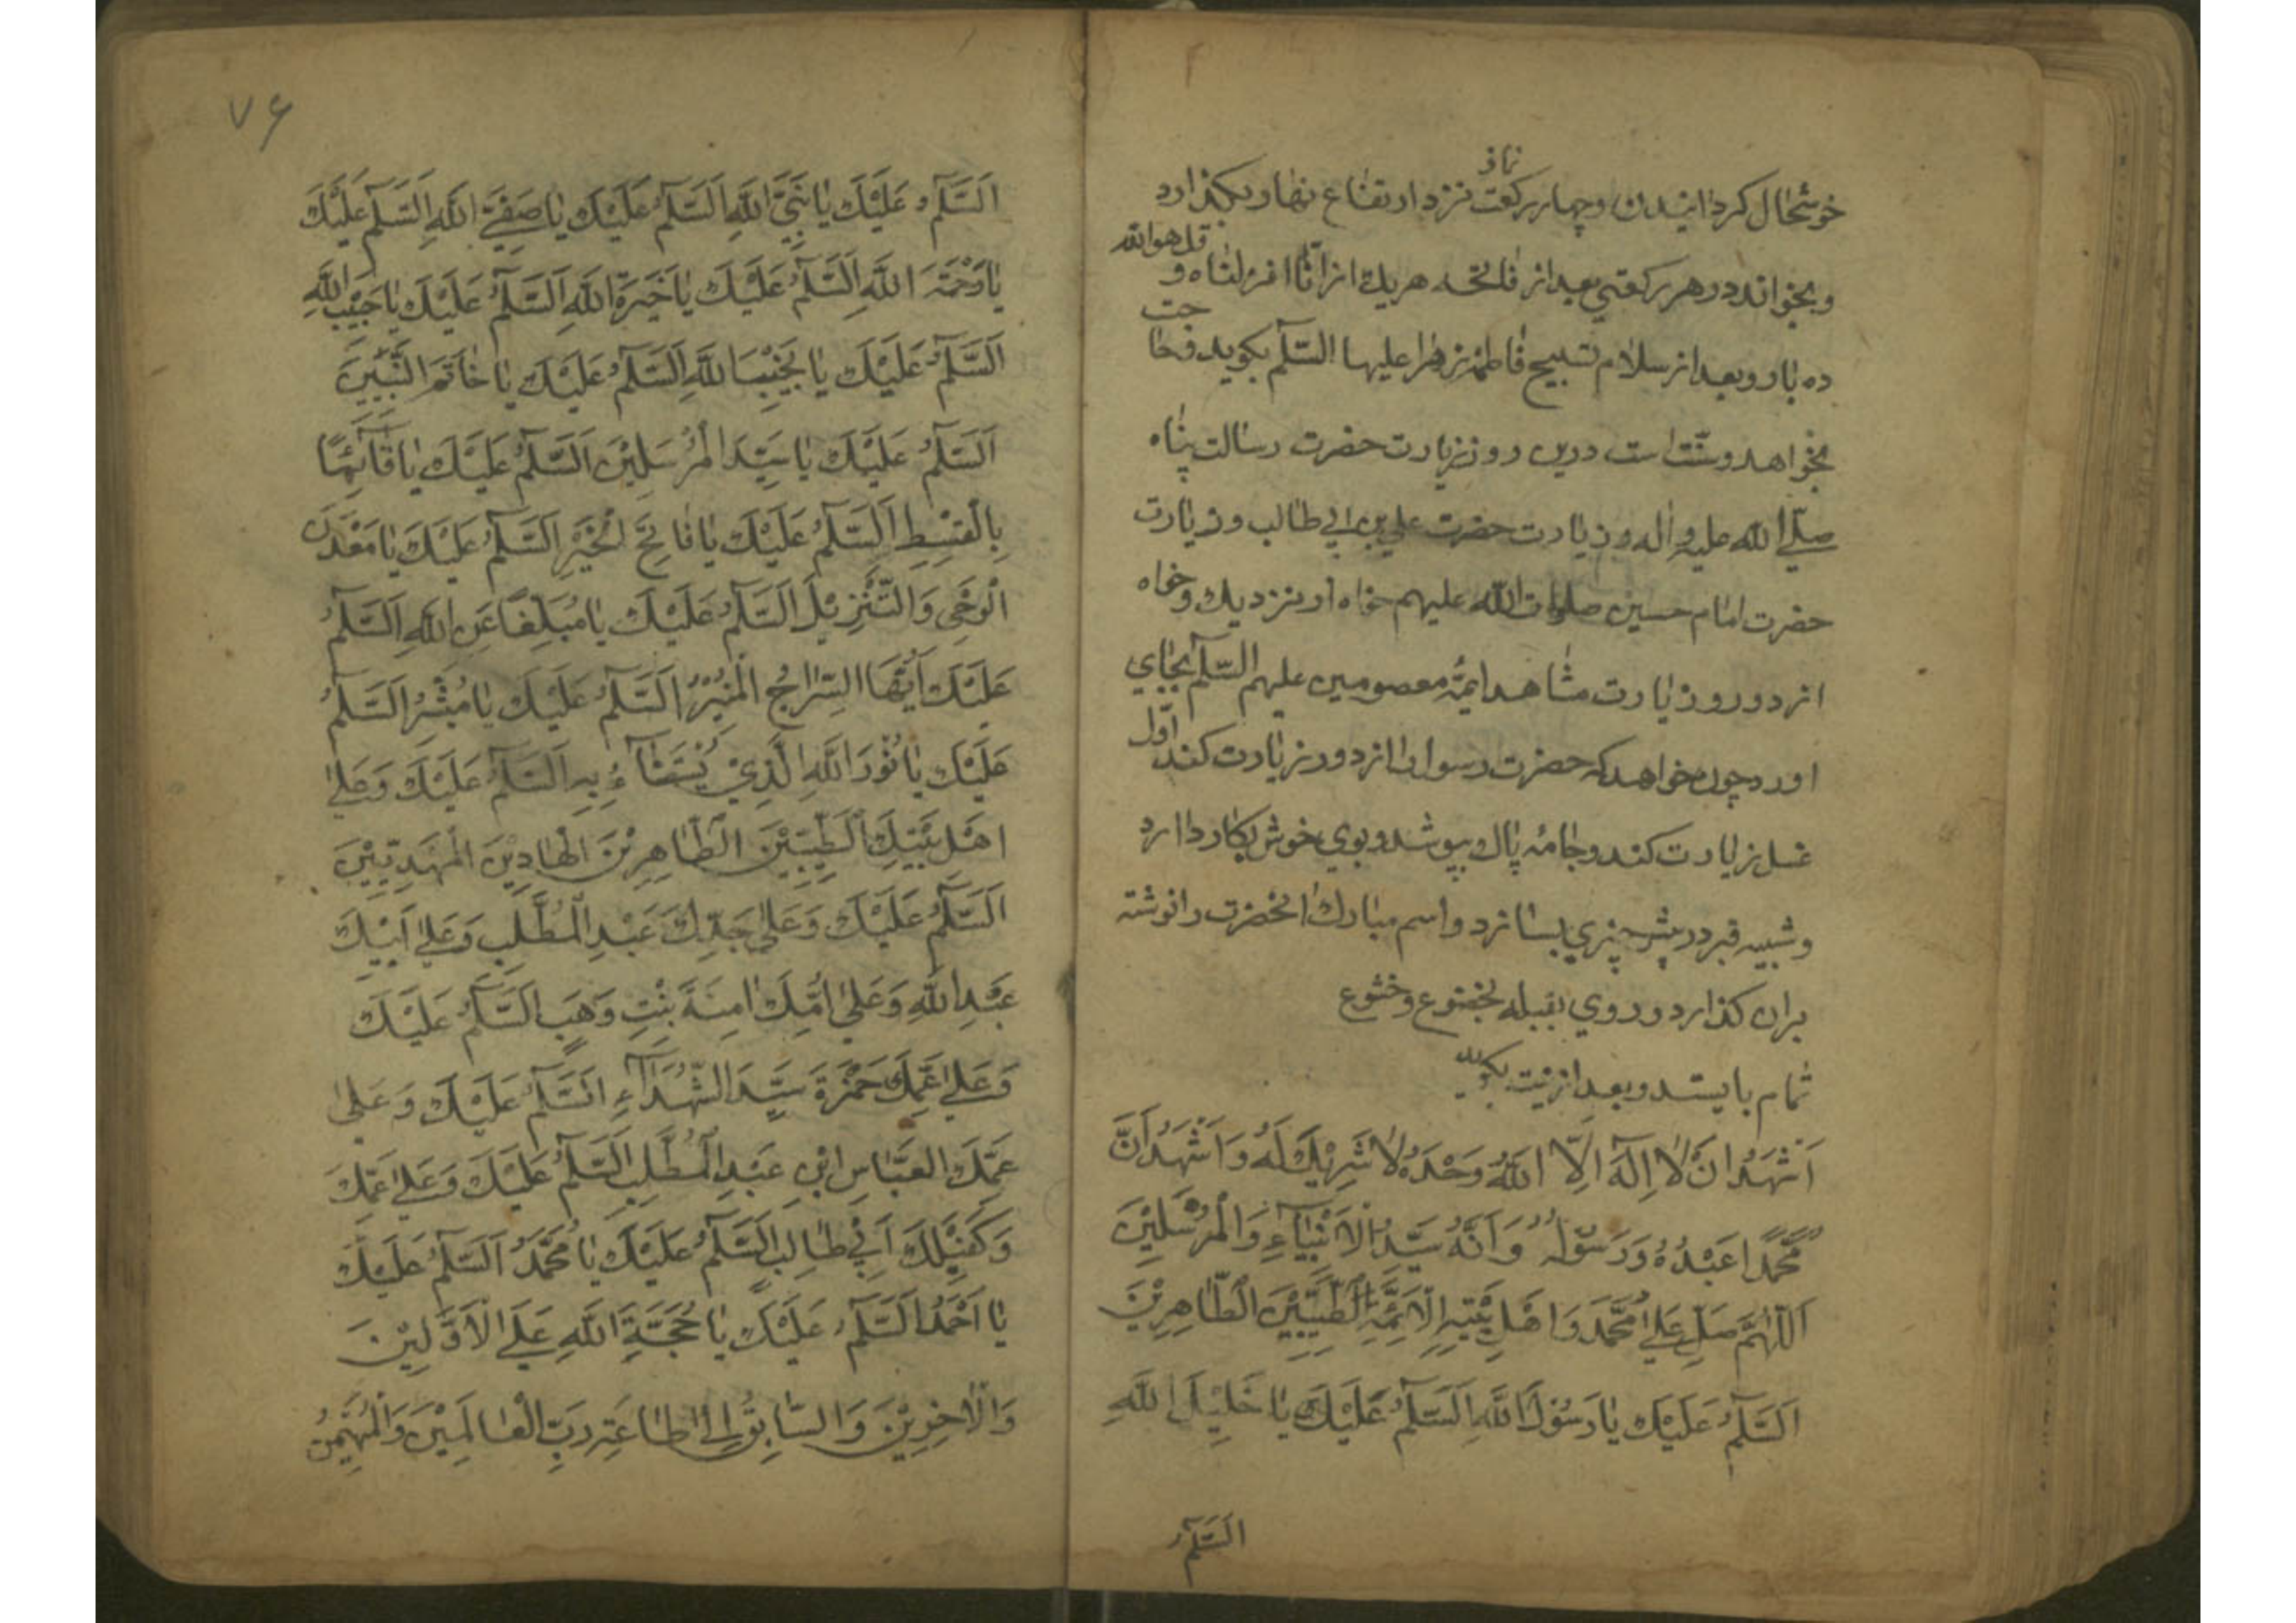 خوشحال کردانیدن و چهار رکعت نماز نزد ارتفاع نهار بکذارد
و بخواند در هر رکعتی بعد از فاتحه هریك از انّا انزلناه و قل هو الله
ده بار و بعد از سلام تسبیح فاطمه زهرا علیها السّلم بکوید و حاجت
بخواهد و سنّت است درین روز زیارت حضرت رسالت پناه
صلّی الله علیه و اله و زیارت حضرت علی بن ابی طالب و زیارت
حضرت امام حسین صلوات الله علیهم خواه از نزدیك و خواه
از دور و زیارت مشاهد ایمّهٔ معصومین علیهم السّلم بجای
اورد چون خواهد که حضرت رسول را از دور زیارت کند اوّل
غسل زیارت کند و جامهٔ پاك بپوشد و بوی خوش بکار دارد
و شبیه قبر در پیش چیزی بسازد و اسم مبارك انحضرت را نوشته
بران کذارد و روی بقبله بخضوع و خشوع
تمام بایستد و بعد از نیت بکوید
اَشْهَدُ اَنْ لٰا اِلٰهَ اِلَّا اللّٰهُ وَحْدَهُ لٰا شَرِیْكَ لَهُ وَ اَشْهَدُ اَنَّ
مُحَمَّدًا عَبْدُهُ وَ رَسُوْلُهُ وَ اَنَّهُ سَیِّدُ الْاَنْبِیٰآءِ وَ الْمُرْسَلِیْنَ
اَللّٰهُمَّ صَلِّ عَلیٰ مُحَمَّدَ وَ اَهْلِ بَیْتِهِ الْاَئِمَّةِ الطَّیِّبِیْنَ الطّٰاهِرِیْنَ
اَلسَّلٰمُ عَلَیْكَ یٰا رَسُوْلَ اللّٰهِ اَلسَّلٰمُ عَلَیْكَ یٰا خَلِیْلَ اللّٰهِ
السَّلٰمُ
۷۶
اَلسَّلٰمُ عَلَیْكَ یٰا نَبِیَّ اللّٰهِ اَلسَّلٰمُ عَلَیْكَ یٰا صَفِیَّ اللّٰهِ اَلسَّلٰمُ عَلَیْكَ
یٰا رَحْمَةَ اللّٰهِ اَلسَّلٰمُ عَلَیْكَ یٰا خَیَرَةَ اللّٰهِ اَلسَّلٰمُ عَلَیْكَ یٰا حَبِیْبَ اللّٰهِ
اَلسَّلٰمُ عَلَیْكَ یٰا نَجِیْبَ اللّٰهِ اَلسَّلٰمُ عَلَیْكَ یٰا خٰاتَمَ النَّبِیّٖنَ
اَلسَّلٰمُ عَلَیْكَ یٰا سَیِّدَ الْمُرْسَلِیْنَ اَلسَّلٰمُ عَلَیْكَ یٰا قٰآئِمًا
بِالْقِسْطِ اَلسَّلٰمُ عَلَیْكَ یٰا فٰاتِحَ الْخَیْرِ اَلسَّلٰمُ عَلَیْكَ یٰا مَعْدَنَ
الْوَحْیِ وَ التَّنْزِیْلَ اَلسَّلٰمُ عَلَیْكَ یٰا مُبَلِّغًا عَنِ اللّٰهِ اَلسَّلٰمُ
عَلَیْكَ اَیُّهَا السِّرٰاجُ الْمُنِیْرُ اَلسَّلٰمُ عَلَیْكَ یٰا مُبَشِّرُ اَلسَّلٰمُ
عَلَیْكَ یٰا نُوْرَ اللّٰهِ الَّذِیْ یُسْتَضٰآءُ بِهِ اَلسَّلٰمُ عَلَیْكَ وَ عَلیٰ
اَهْلِ بَیْتِكَ الطَّیِّبِیْنَ الطّٰاهِرِیْنَ الْهٰادِیْنَ الْمَهْدِیّٖیْنَ
اَلسَّلٰمُ عَلَیْكَ وَ عَلیٰ جَدِّكَ عَبْدِ الْمُطَّلِبِ وَ عَلیٰ اَبِیْكَ
عَبْدِ اللّٰهِ وَ عَلیٰ اُمِّكَ اٰمِنَةَ بِنْتِ وَهَبٍ اَلسَّلٰمُ عَلَیْكَ
وَ عَلیٰ عَمِّكَ حَمْزَةَ سَیِّدِ الشُّهَدٰآءِ اَلسَّلٰمُ عَلَیْكَ وَ عَلیٰ
عَمِّكَ الْعَبّٰاسِ ابْنِ عَبْدِ الْمُطَّلِبِ اَلسَّلٰمُ عَلَیْكَ وَ عَلیٰ عَمِّكَ
وَ كَفِیْلِكَ اَبِیْ طٰالِبٍ اَلسَّلٰمُ عَلَیْكَ یٰا مُحَمَّدُ اَلسَّلٰمُ عَلَیْكَ
یٰا اَحْمَدُ اَلسَّلٰمُ عَلَیْكَ یٰا حُجَّةَ اللّٰهِ عَلَی الْاَوَّلِیْنَ
وَ الْاٰخِرِیْنَ وَ السّٰابِقُ اِلیٰ طٰاعَةِ رَبِّ الْعٰالَمِیْنَ وَ الْمُهَیْمِنُ